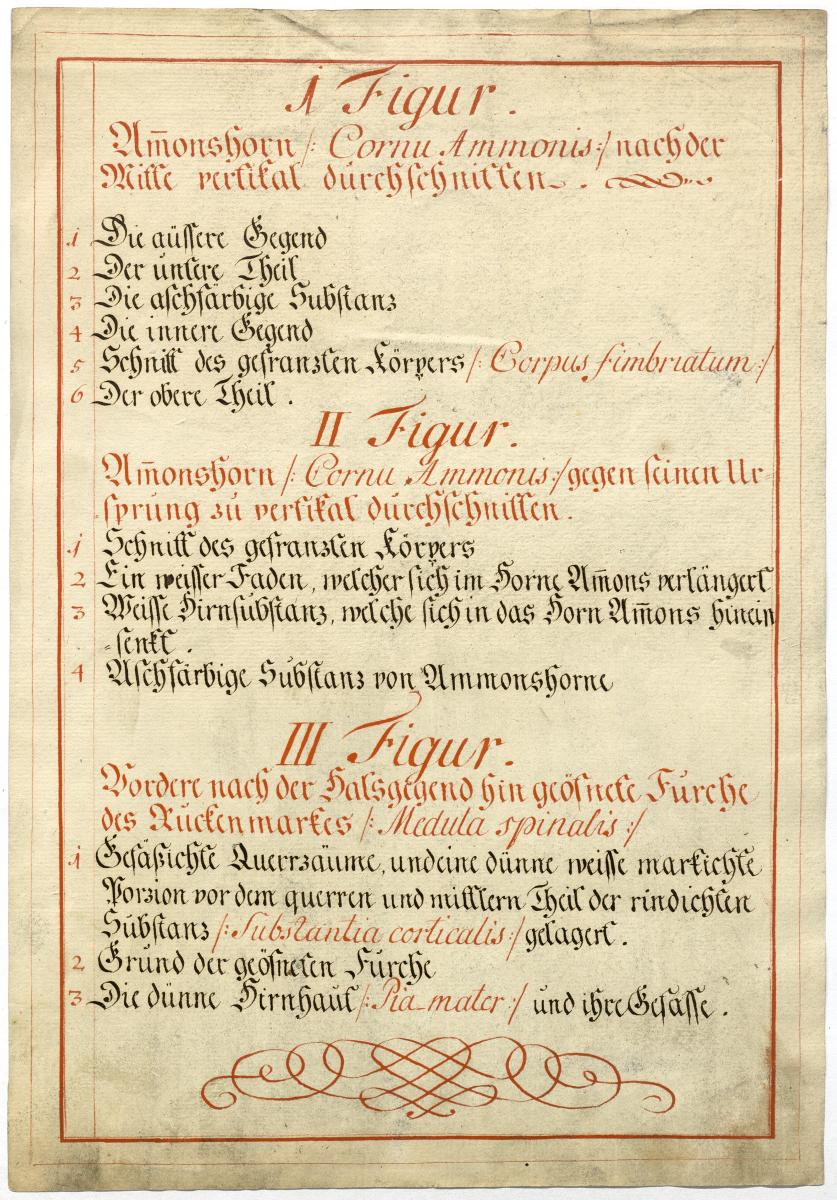 1 Figur.
Am̄onshorn /: Cornu Ammonis :/ nach der
Mitte vertikal durchschnitten.
1 Die äussere Gegend
2 Der untere Theil
3 Die aschfärbige Substanz
4 Die innere Gegend
5 Schnitt des gefranzten Körpers /: Corpus fimbriatum :/
6 Der obere Theil.
II Figur.
Am̄onshorn /: Cornu Ammonis :/ gegen seinen Ur-
sprung zu vertikal durchschnitten.
1 Schnitt des gefranzten Körpers
2 Ein weisser Faden, welcher sich im Horne Am̄ons verlängert
3 Weisse Hirnsubstanz, welche sich in das Horn Am̄ons hinein
=senkt.
4 Aschfärbige Substanz von Ammonshorne
III Figur.
Vordere nach der Halsgegend hin geöfnete Furche
des Ruckenmarkes /: Medula spinalis :/
1 Gefäßichte Querrzäume, und eine dünne weisse markichte
Porzion vor dem querren und mittlern Theil der rindichten
Substanz /: Substantia corticalis :/ gelagert.
2 Grund der geöfneten Furche
3 Die dünne Hirnhaut /: Pia mater :/ und ihre Gefässe.